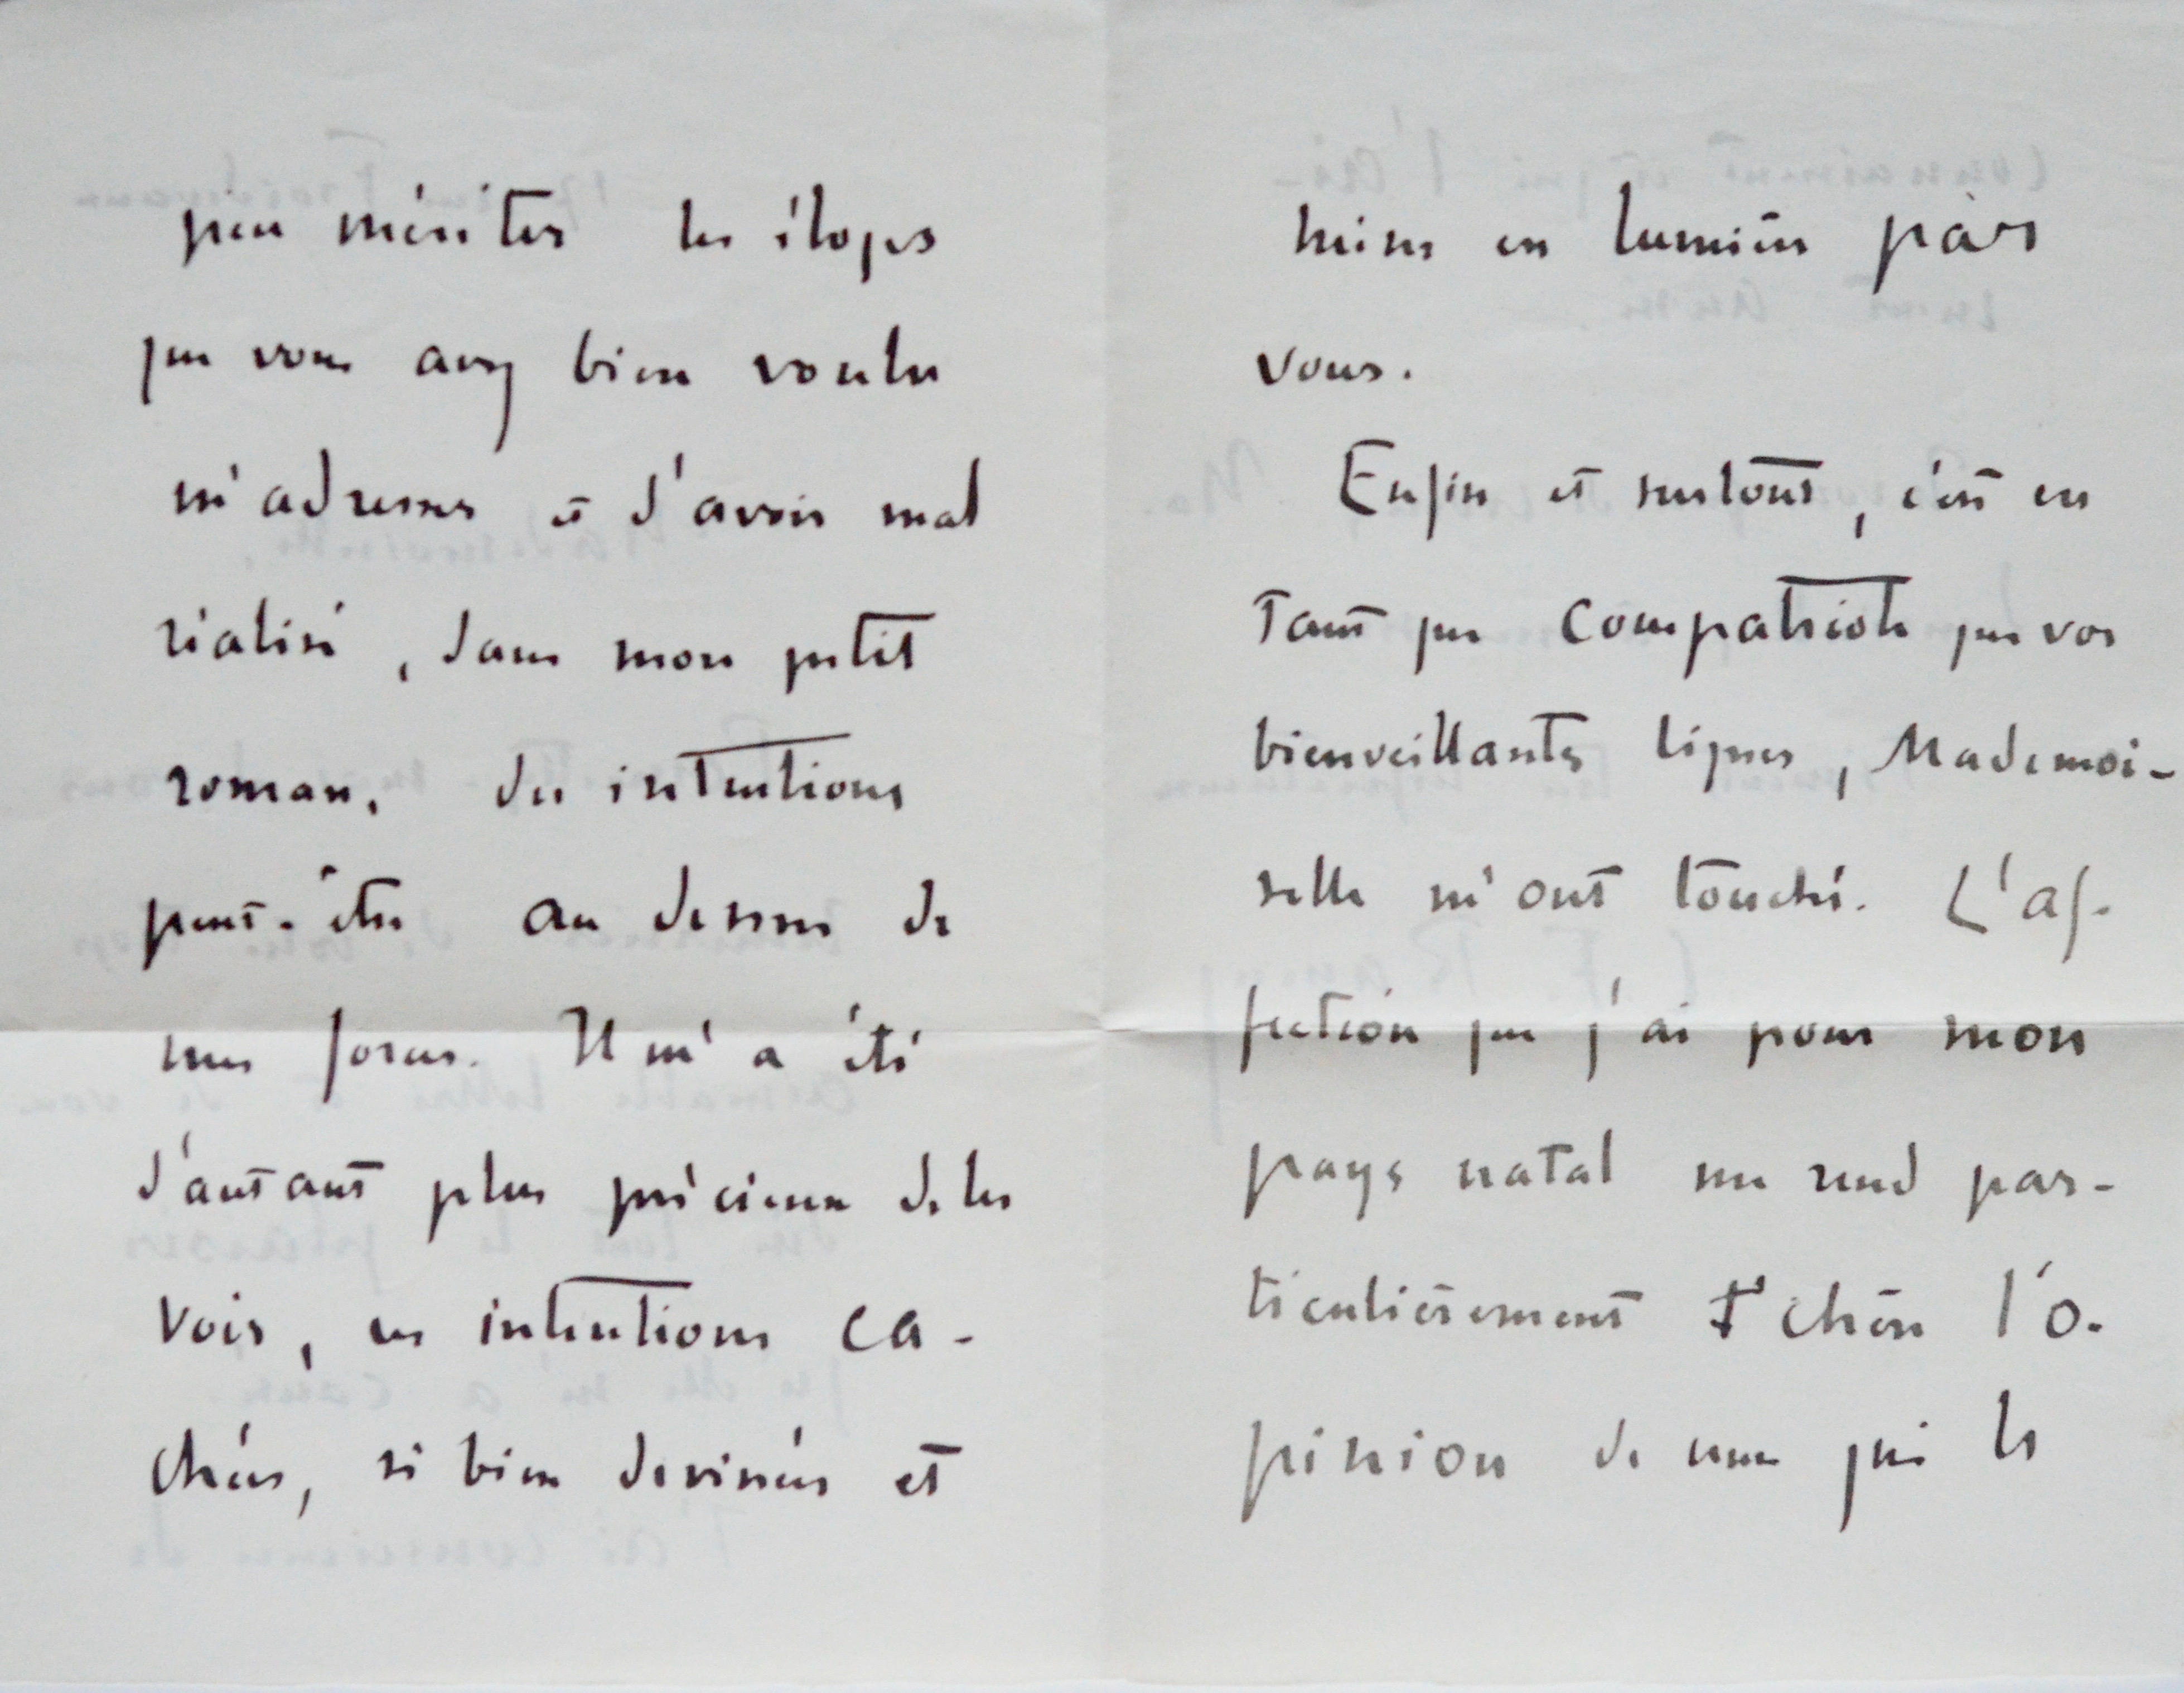 peu mériter les éloges
que vous avez bien voulu
m'adresser et d'avoir mal
réalisé, dans mon petit
roman, des intentions
peut-être au dessus de
mes forces. Il m'a été
d'autant plus précieux de les
voir, ces intentions ca-
chées, si bien devinées et
mises en lumière par
vous.
Enfin et surtout, c'est en
tant que compatriote que vos
bienveillantes lignes, Mademoi-
selle m'ont touché. L'af-
fection que j'ai pour mon
pays natal me rend par-
ticulièrement chère l'o-
pinion de ceux qui le